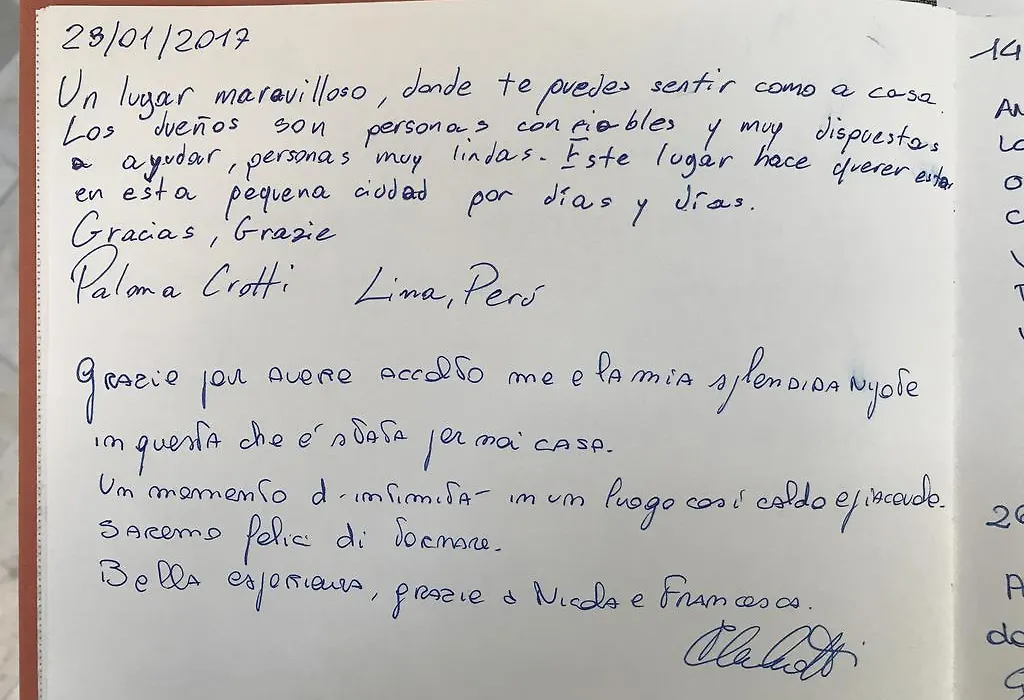 23/01/2017
Un lugar maravilloso, donde te puedes sentir como a casa.
Los dueños son personas confiables y muy dispuestas
a ayudar, personas muy lindas. Este lugar hace querer estar
en esta pequena ciudad por días y días.
Gracias, Grazie
Paloma Crotti Lima, Perú
Grazie per avere accolto me e la mia splendida nipote
in questa che é stata per noi casa.
Un momento d'intimità in un luogo così caldo e piacevole.
Saremo felici di tornare.
Bella esperienza, grazie a Nicola e Francesca.
14
26